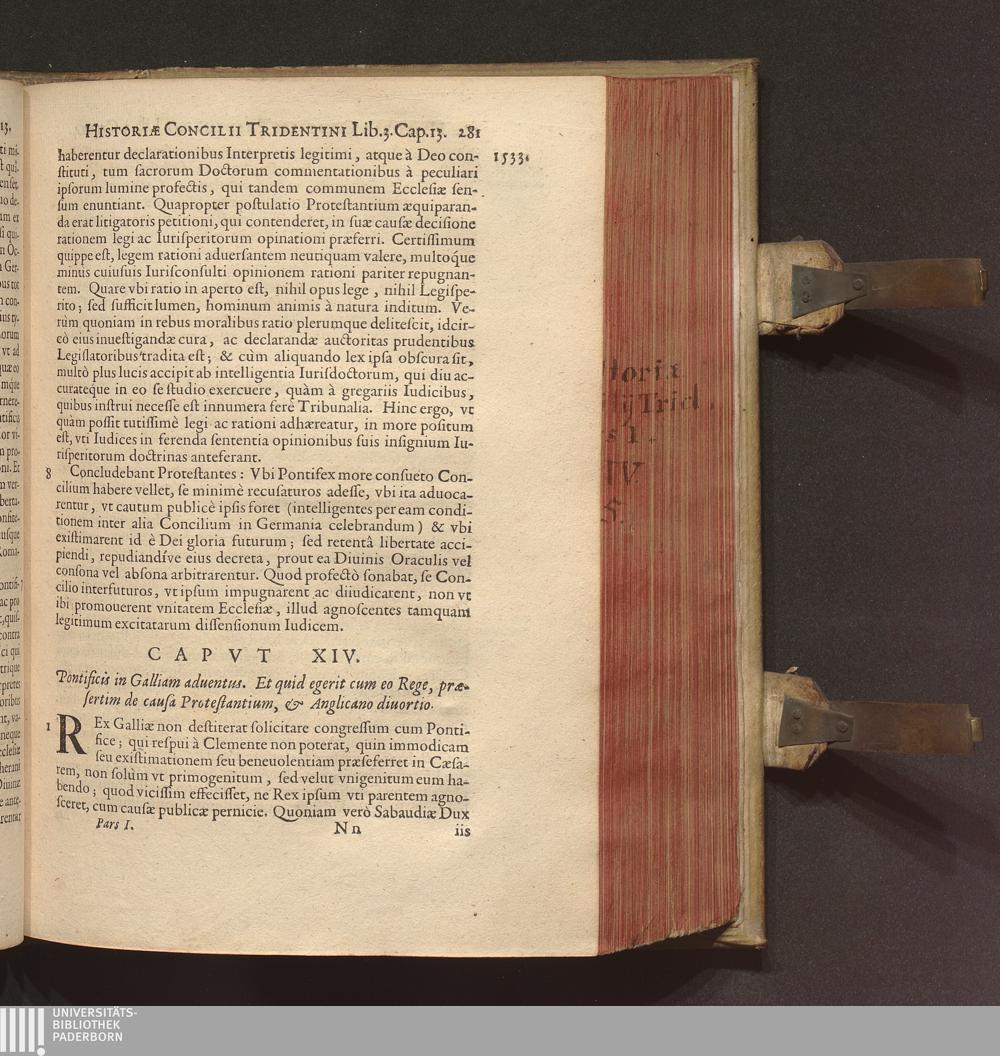 HISTORIÆ CONCILII TRIDENTINI Lib.3.Cap.13. 281
1533.
haberentur declarationibus Interpretis legitimi, atque à Deo con-
ſtituti, tum ſacrorum Doctorum commentationibus à peculiari
ipſorum lumine profectis, qui tandem communem Eccleſiæ ſen-
ſum enuntiant. Quapropter poſtulatio Proteſtantium æquiparan-
da erat litigatoris petitioni, qui contenderet, in ſuæ cauſæ deciſione
rationem legi ac Iuriſperitorum opinationi præferri. Certiſſimum
quippe eſt, legem rationi aduerſantem neutiquam valere, multoque
minus cuiuſuis Iuriſconſulti opinionem rationi pariter repugnan-
tem. Quare vbi ratio in aperto eſt, nihil opus lege, nihil Legiſpe-
rito; ſed ſufficit lumen, hominum animis à natura inditum. Ve-
rùm quoniam in rebus moralibus ratio plerumque deliteſcit, idcir-
cò eius inueſtigandæ cura, ac declarandæ auctoritas prudentibus
Legiſlatoribus tradita eſt; & cùm aliquando lex ipſa obſcura ſit,
multò plus lucis accipit ab intelligentia Iuriſdoctorum, qui diu ac-
curateque in eo ſe ſtudio exercuere, quàm à gregariis Iudicibus,
quibus inſtrui neceſſe eſt innumera ferè Tribunalia. Hinc ergo, vt
quàm poſſit tutiſſimè legi ac rationi adhæreatur, in more poſitum
eſt, vti Iudices in ferenda ſententia opinionibus ſuis inſignium Iu-
riſperitorum doctrinas anteferant.
8 Concludebant Proteſtantes: Vbi Pontifex more conſueto Con-
cilium habere vellet, ſe minimè recuſaturos adeſſe, vbi ita aduoca-
rentur, vt cautum publicè ipſis foret (intelligentes per eam condi-
tionem inter alia Concilium in Germania celebrandum) & vbi
exiſtimarent id è Dei gloria futurum; ſed retentâ libertate acci-
piendi, repudiandíve eius decreta, prout ea Diuinis Oraculis vel
conſona vel abſona arbitrarentur. Quod profectò ſonabat, ſe Con-
cilio interfuturos, vt ipſum impugnarent ac diiudicarent, non vt
ibi promouerent vnitatem Eccleſiæ, illud agnoſcentes tamquam
legitimum excitatarum diſſenſionum Iudicem.
CAPVT XIV.
Pontificis in Galliam aduentus. Et quid egerit cum eo Rege, præ-
ſertim de cauſa Proteſtantium, & Anglicano diuortio.
1 REx Galliæ non deſtiterat ſolicitare congreſſum cum Ponti-
fice; qui reſpui à Clemente non poterat, quin immodicam
ſeu exiſtimationem ſeu beneuolentiam præſeferret in Cæſa-
rem, non ſolùm vt primogenitum, ſed velut vnigenitum eum ha-
bendo; quod viciſſim effeciſſet, ne Rex ipſum vti parentem agno-
ſceret, cum cauſæ publicæ pernicie. Quoniam verò Sabaudiæ Dux
Pars I. Nn iis
UNIVERSITÄTS-
BIBLIOTHEK
PADERBORN